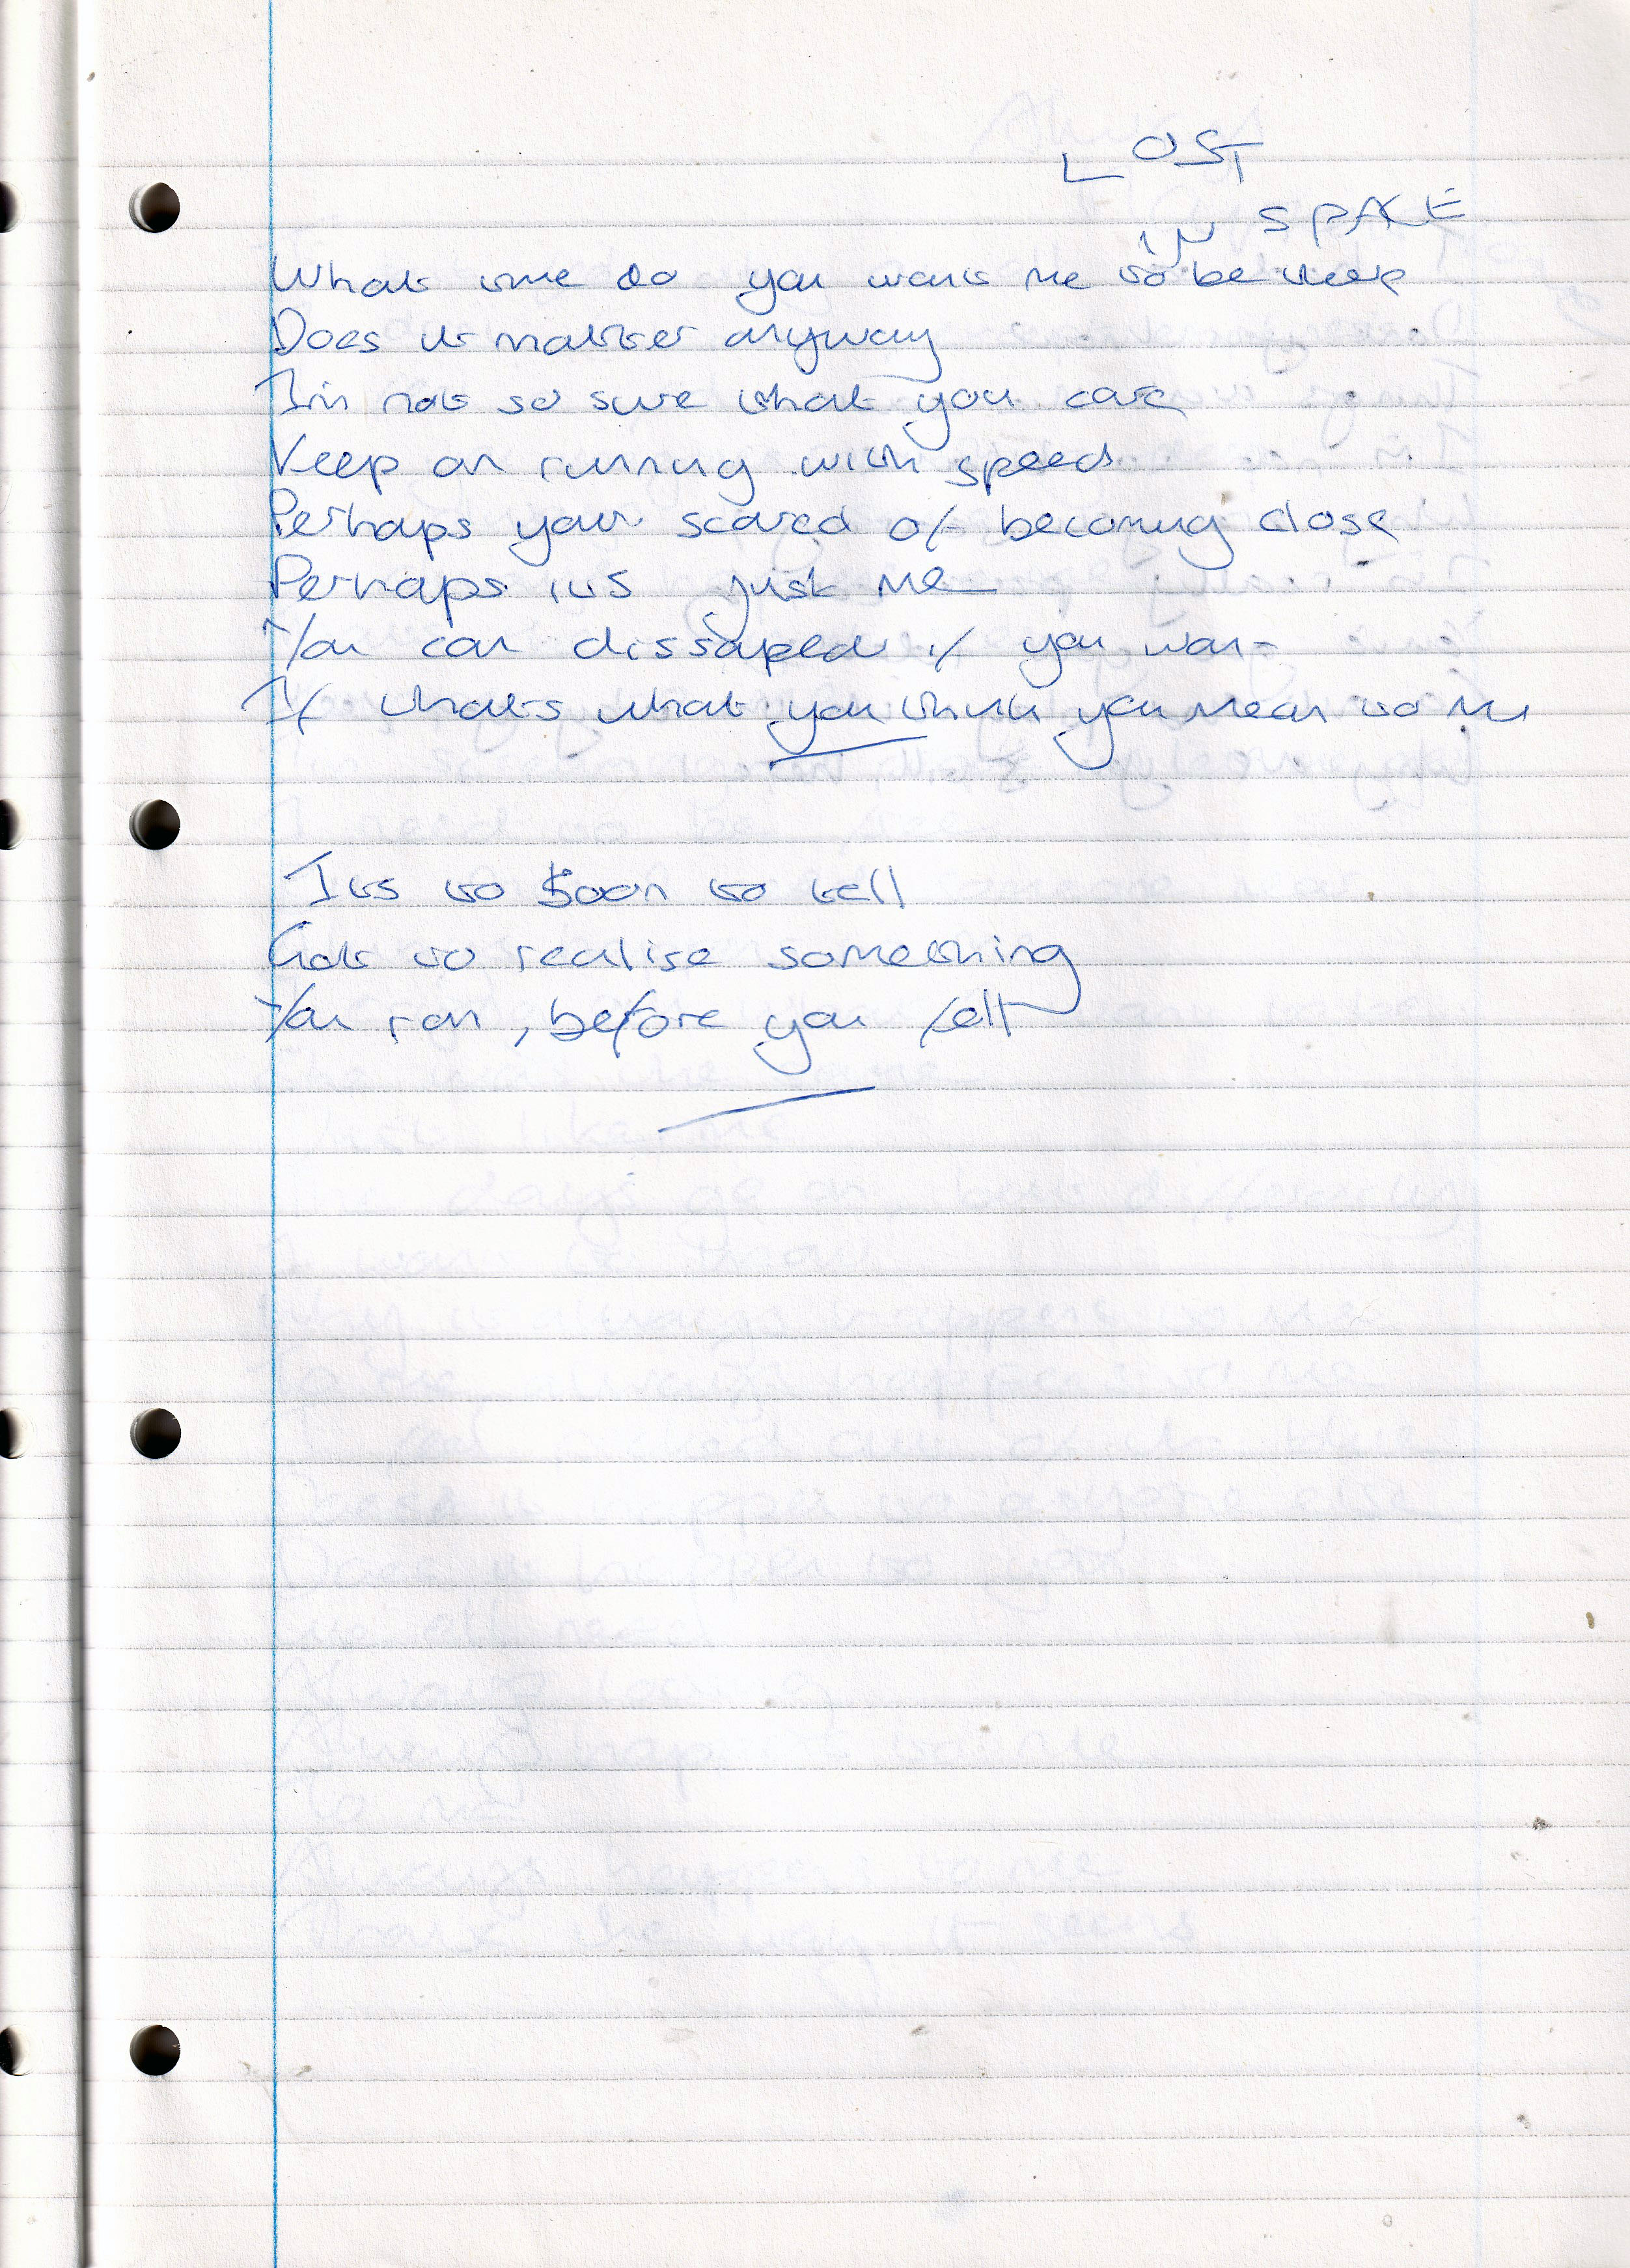 LOST
IN SPACE
What time do you want me to be there
Does it matter anyway
I'm not so sure that you care
Keep on running with speed
Perhaps your scared of becoming close
Perhaps its just me
You can dissaped if you want
If thats what you think you mean to me
Its to soon to tell
Got to realise something
You ran, before you fell